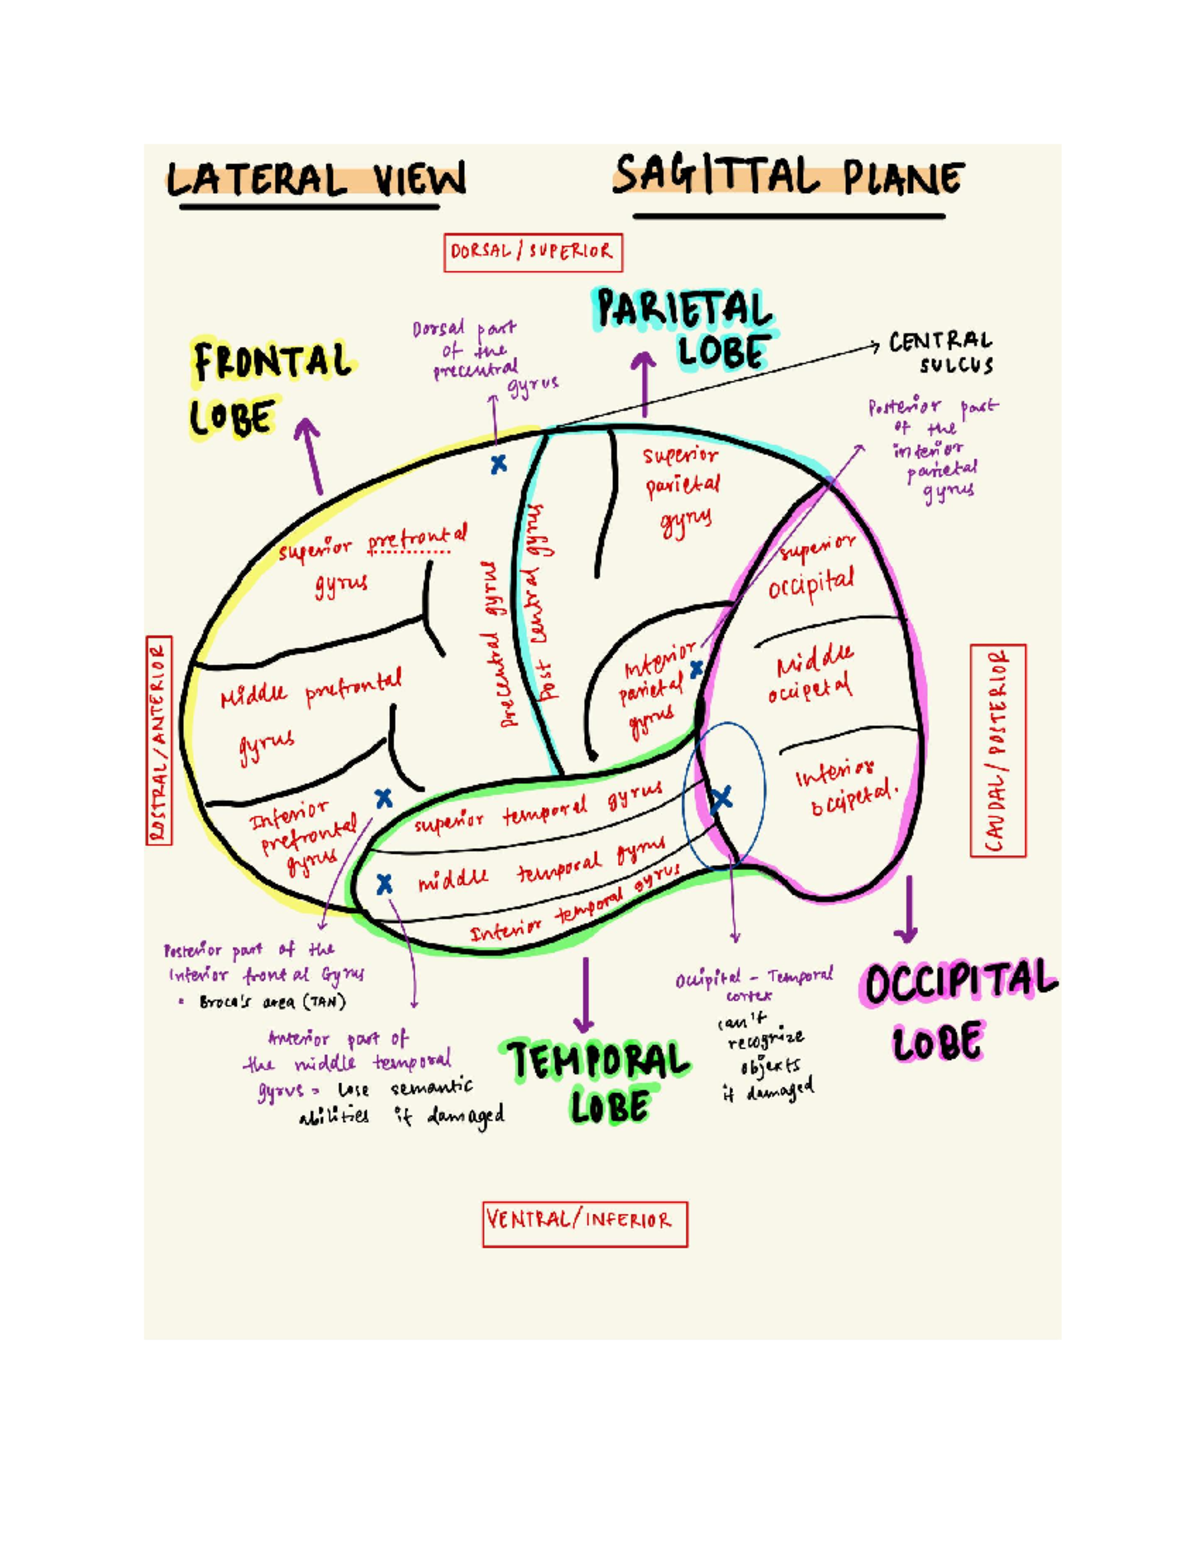 LATERAL VIEW
SAGITTAL PLANE
DORSAL / SUPERIOR
PARIETAL
LOBE
Dorsal part
of the
precentral
gyrus
FRONTAL
LOBE
CENTRAL
SULCUS
Posterior part
of the
inferior
parietal
gyrus
superior
parietal
gyrus
superior prefrontal
gyrus
Precentral gyrus
Post central gyrus
superior
occipital
Middle prefrontal
gyrus
Inferior
parietal
gyrus
Middle
occipetal
ROSTRAL / ANTERIOR
CAUDAL / POSTERIOR
Inferior
occipetal.
Inferior
prefrontal
gyrus
superior temporal gyrus
middle temporal gyrus
Inferior temporal gyrus
Posterior part of the
Inferior frontal Gyrus
= Broca's area (TAN)
Anterior part of
the middle temporal
gyrus = Lose semantic
abilities if damaged
TEMPORAL
LOBE
Occipital - Temporal
cortex
can't
recognize
objects
if damaged
OCCIPITAL
LOBE
VENTRAL / INFERIOR